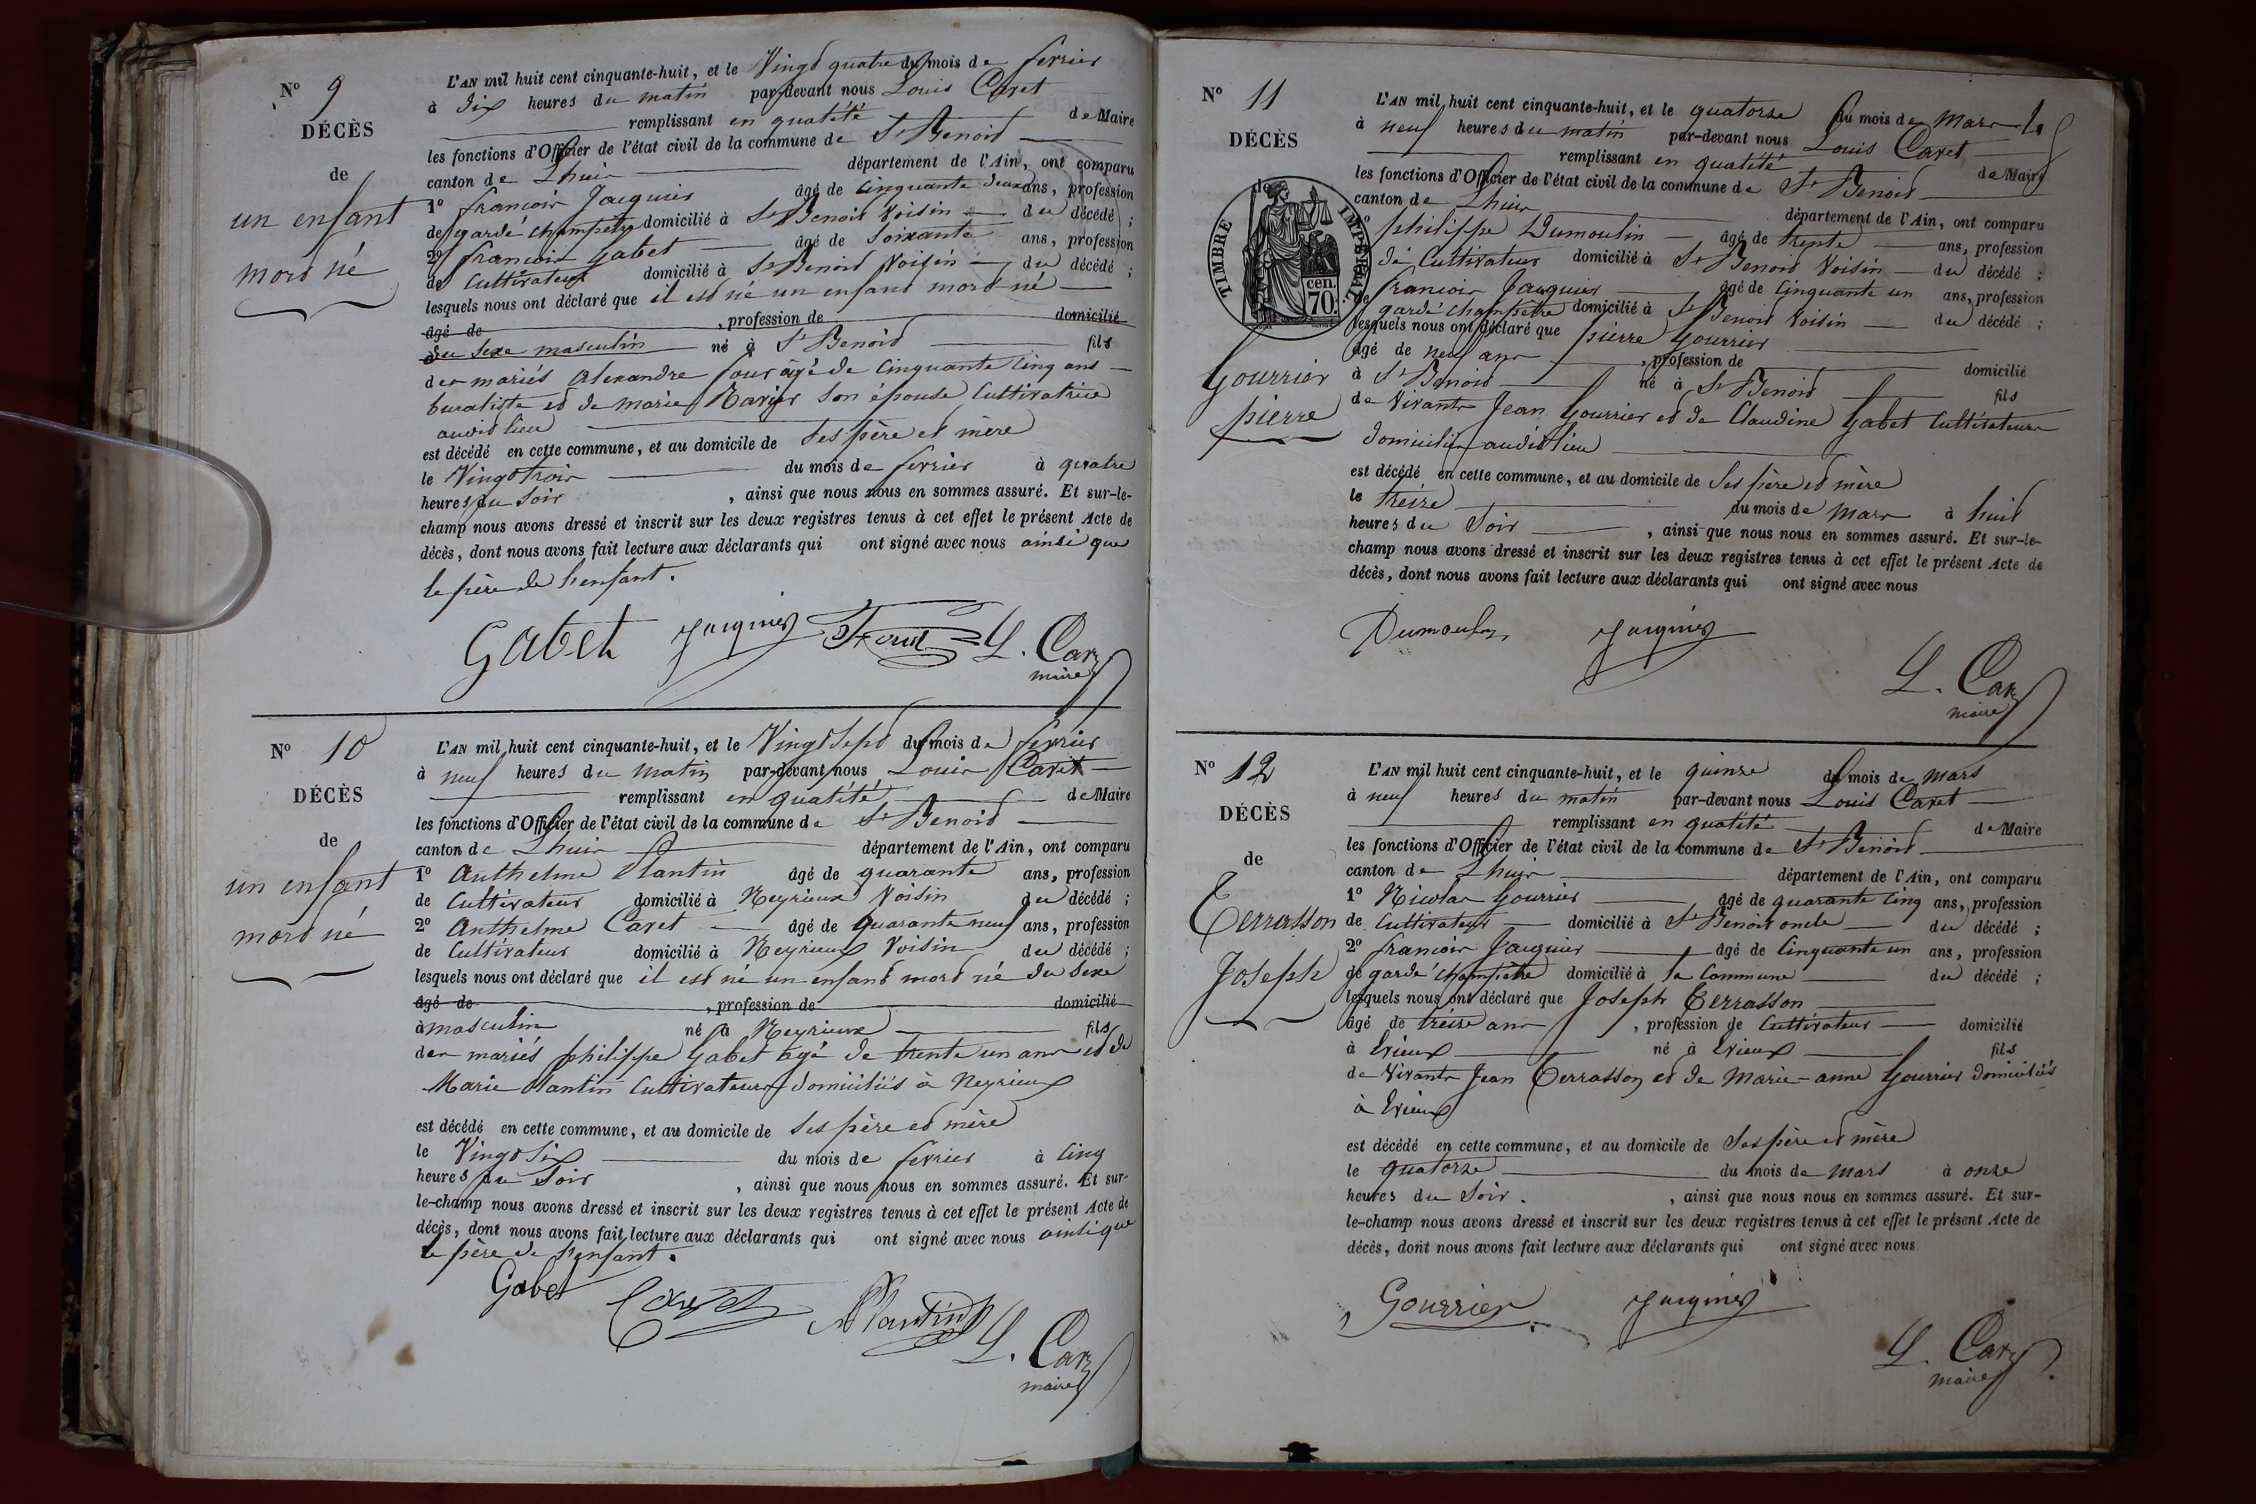 N° 9
DÉCÈS
de
un enfant
mord né
L'AN mil huit cent cinquante-huit, et le Vingt quatre du mois de fevrier
à dix heures du matin par-devant nous Louis Caret
remplissant en qualité de Maire
les fonctions d'Officier de l'état civil de la commune de St Benoid
canton de Lhuis département de l'Ain, ont comparu
1° francois Jaquier âgé de Cinquante deux ans, profession
de garde Champetre domicilié à St Benoid Voisin du décédé ;
2° francois Gabet âgé de Soixante ans, profession
de Cultivateur domicilié à St Benoid Voisin du décédé ;
lesquels nous ont déclaré que il est né un enfant mord né
âgé de , profession de domicilié
du Sexe masculin né à St Benoid fils
des mariés Alexandre four âgé de Cinquante Cinq ans
buraliste et de marie Ravier son épouse Cultivatrice
audit lieu
est décédé en cette commune, et au domicile de Ses père et mère
le Vingt trois du mois de fevrier à quatre
heures du Soir , ainsi que nous nous en sommes assuré. Et sur-le-
champ nous avons dressé et inscrit sur les deux registres tenus à cet effet le présent Acte de
décès, dont nous avons fait lecture aux déclarants qui ont signé avec nous ainsi que
le père de l'enfant.
Gabet Jaiquier Four L. Caret
maire
N° 10
DÉCÈS
de
un enfant
mord né
L'AN mil huit cent cinquante-huit, et le Vingt Sept du mois de fevrier
à neuf heures du matin par-devant nous Louis Caret
remplissant en qualité de Maire
les fonctions d'Officier de l'état civil de la commune de St Benoid
canton de Lhuis département de l'Ain, ont comparu
1° Anthelme Plantin âgé de quarante ans, profession
de Cultivateur domicilié à Neyrieux Voisin du décédé ;
2° Anthelme Caret âgé de quarante neuf ans, profession
de Cultivateur domicilié à Neyrieux Voisin du décédé ;
lesquels nous ont déclaré que il est né un enfant mord né du Sexe
âgé de , profession de domicilié
à masculin né à Neyrieux fils
des mariés philippe Gabet âgé de trente un ans et de
Marie Plantin Cultivateurs domiciliés à Neyrieux
est décédé en cette commune, et au domicile de Ses père et mère
le Vingt Six du mois de fevrier à Cinq
heures du Soir , ainsi que nous nous en sommes assuré. Et sur-
le-champ nous avons dressé et inscrit sur les deux registres tenus à cet effet le présent Acte de
décès, dont nous avons fait lecture aux déclarants qui ont signé avec nous ainsi que
le père de l'enfant.
Gabet Caret Plantin L. Caret
maire
N° 11
DÉCÈS
de
TIMBRE IMPÉRIAL
70 cen.
Gourrier
pierre
L'AN mil huit cent cinquante-huit, et le quatorze du mois de Mars
à neuf heures du matin par-devant nous Louis Caret
remplissant en qualité de Maire
les fonctions d'Officier de l'état civil de la commune de St Benoid
canton de Lhuis département de l'Ain, ont comparu
philippe Dumoulin âgé de trente ans, profession
de Cultivateur domicilié à St Benoid Voisin du décédé ;
francois Jaquier âgé de Cinquante un ans, profession
garde Champêtre domicilié à St Benoid Voisin du décédé ;
lesquels nous ont déclaré que pierre Gourrier
âgé de neuf ans , profession de domicilié
à St Benoid né à St Benoid fils
de Vivants Jean Gourrier et de Claudine Gabet Cultivateurs
domiciliés audit lieu
est décédé en cette commune, et au domicile de Ses père et mère
le treize du mois de Mars à huit
heures du Soir , ainsi que nous nous en sommes assuré. Et sur-le-
champ nous avons dressé et inscrit sur les deux registres tenus à cet effet le présent Acte de
décès, dont nous avons fait lecture aux déclarants qui ont signé avec nous
Dumoulin Jaiquier
L. Caret
maire
N° 12
DÉCÈS
de
Terrasson
Joseph
L'AN mil huit cent cinquante-huit, et le quinze du mois de Mars
à neuf heures du matin par-devant nous Louis Caret
remplissant en qualité de Maire
les fonctions d'Officier de l'état civil de la commune de St Benoid
canton de Lhuis département de l'Ain, ont comparu
1° Nicolas Gourrier âgé de quarante Cinq ans, profession
de Cultivateur domicilié à St Benoid oncle du décédé ;
2° francois Jaquier âgé de Cinquante un ans, profession
de garde Champêtre domicilié à la Commune du décédé ;
lesquels nous ont déclaré que Joseph Terrasson
âgé de treize ans , profession de Cultivateur domicilié
à Evieux né à Evieux fils
de Vivants Jean Terrasson et de Marie-anne Gourrier domiciliés
à Evieux
est décédé en cette commune, et au domicile de Ses père et mère
le quatorze du mois de Mars à onze
heures du Soir. , ainsi que nous nous en sommes assuré. Et sur-
le-champ nous avons dressé et inscrit sur les deux registres tenus à cet effet le présent Acte de
décès, dont nous avons fait lecture aux déclarants qui ont signé avec nous
Gourrier Jaiquier
L. Caret
maire